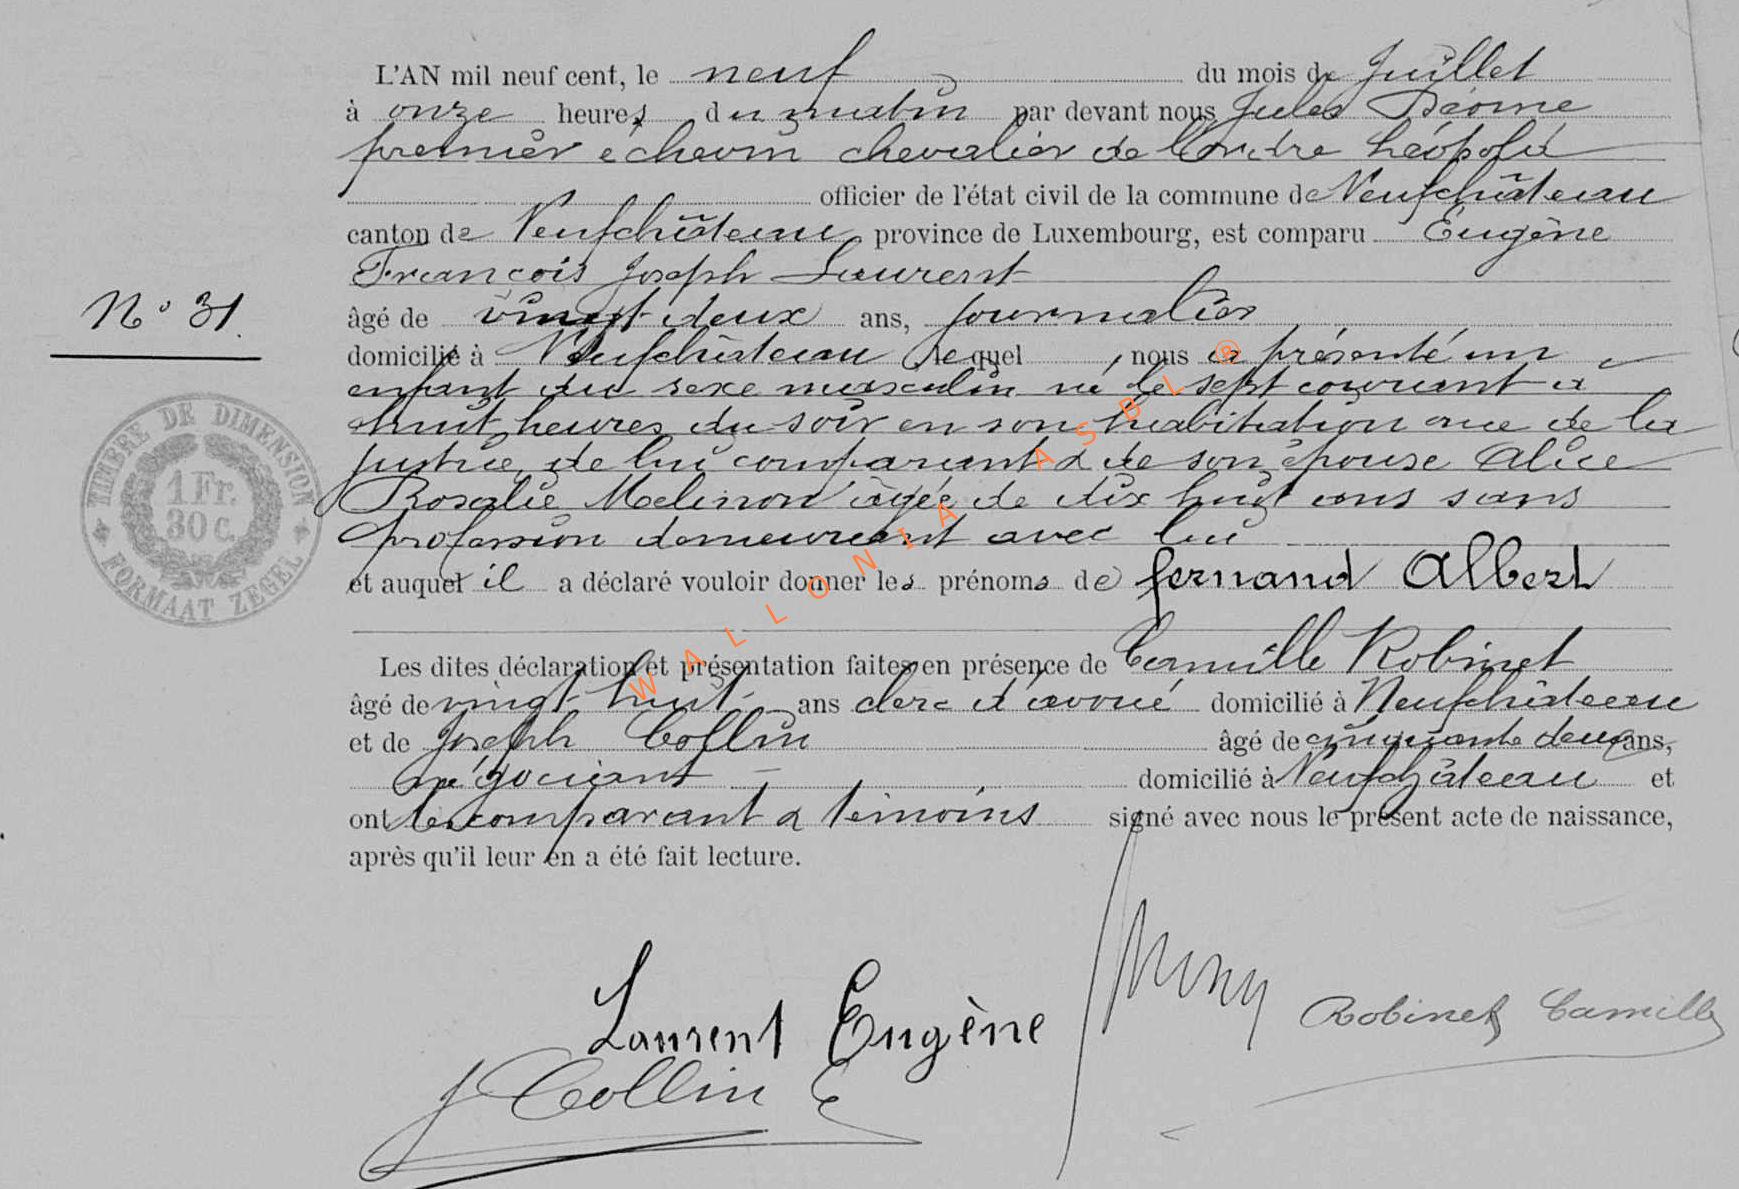 L'AN mil neuf cent, le neuf du mois de Juillet
à onze heures du matin par devant nous Jules
premier echevin chevalier de l'ordre Léopold
officier de l'état civil de la commune de Neufchâteau
canton de Neufchâteau province de Luxembourg, est comparu Eugène
François Joseph Laurent
N° 31.
âgé de vingt deux ans, journalier
domicilié à Neufchâteau lequel, nous a présenté un
enfant du sexe masculin né le sept courant à
huit heures du soir en son habitation rue de la
justice, de lui comparant & de son épouse Alice
Rosalie Molinon âgée de dix huit ans sans
profession demeurant avec lui
et auquel il a déclaré vouloir donner les prénoms de fernand Albert
Les dites déclaration et présentation faites en présence de Camille Robinet
âgé de vingt huit ans clerc d'avoué domicilié à Neufchâteau
et de Joseph Collin âgé de cinquante deux ans,
négociant domicilié à Neufchâteau et
ont les comparant & témoins signé avec nous le présent acte de naissance,
après qu'il leur en a été fait lecture.
TIMBRE DE DIMENSION
1 Fr.
30 c.
FORMAAT ZEGEL
WALLONIA ASBL ®
Laurent Eugène
Robinet Camille
J Collin